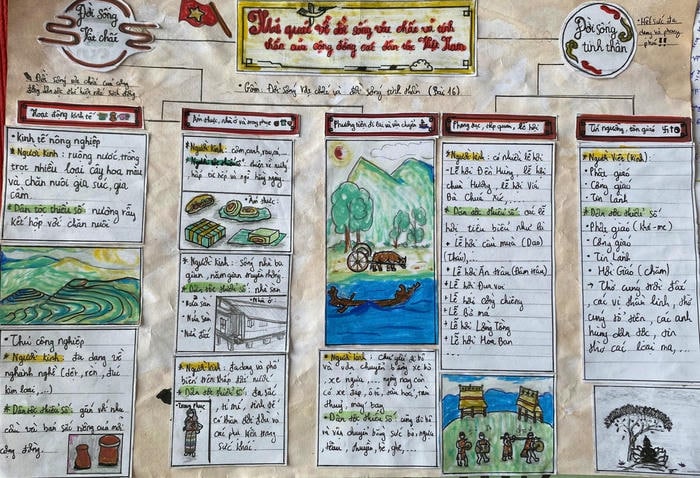 Đời sống
Vật chất
Khái quát về đời sống vật chất và tinh
thần của cộng đồng các dân tộc Việt Nam
Đời sống
tinh thần
• Gồm: Đời sống vật chất và đời sống tinh thần (Bài 16)
Hoạt động kinh tế
Ẩm thực, nhà ở và trang phục
Phương tiện đi lại và vận chuyển
Phong tục, tập quán, lễ hội
Tín ngưỡng, tôn giáo
• Kinh tế nông nghiệp
* Người kinh: ruộng nước, trồng
trọt nhiều loại cây hoa màu
và chăn nuôi gia súc, gia
cầm.
* Dân tộc thiểu số: nương rẫy
kết hợp với chăn nuôi
• Thủ công nghiệp
* Người kinh: đa dạng về
nghành nghề (dệt, rèn, đúc
kim loại,...)
* Dân tộc thiểu số: gắn với nhu
cầu và bản sắc riêng của mỗi
cộng đồng.
* Người kinh: cơm, canh, rau, cá...
• Ẩm thực:
* Người kinh: Sống nhà ba
gian, năm gian truyền thống.
* Dân tộc thiểu số: nhà sàn
• Nhà ở:
• Nhà sàn
* Người kinh: đa dạng và phổ
biến trên khắp đất nước
* Dân tộc thiểu số: đa sắc
• Trang phục
sắc khác.
* Người kinh:
và vận chuyển bằng xe bò
, xe ngựa,... ngày nay còn
có xe đạp, ô tô, tàu hoả, tàu
thuỷ, máy bay
* Dân tộc thiểu số: cũng đi bộ
và vận chuyển bằng sức bò, ngựa
, thuyền, bè, ghe,...
* Người kinh: có nhiều lễ hội
• Lễ hội Đền Hùng, lễ hội
chùa Hương, lễ hội Vía
Bà Chúa Xứ,...
* Dân tộc thiểu số: các lễ
hội tiêu biểu như là
+ Lễ hội cầu mùa (Dao)
(Thái),...
+ Lễ hội
+ Lễ hội Đua voi
+ Lễ hội cồng chiêng
+ Lễ bỏ mả
+ Lễ hội Lồng Tồng
+ Lễ hội Hoa Ban
...
* Người Việt (kinh):
• Phật giáo
• Công giáo
• Tin Lành
* Dân tộc thiểu số
• Phật giáo (Khơ-me)
• Công giáo
• Tin Lành
• Hồi Giáo (chăm)
→ Thờ cúng trời đất
, các vị thần linh, thờ
cúng tổ tiên, các anh
hùng dân tộc, tin
thờ các loại ma,...